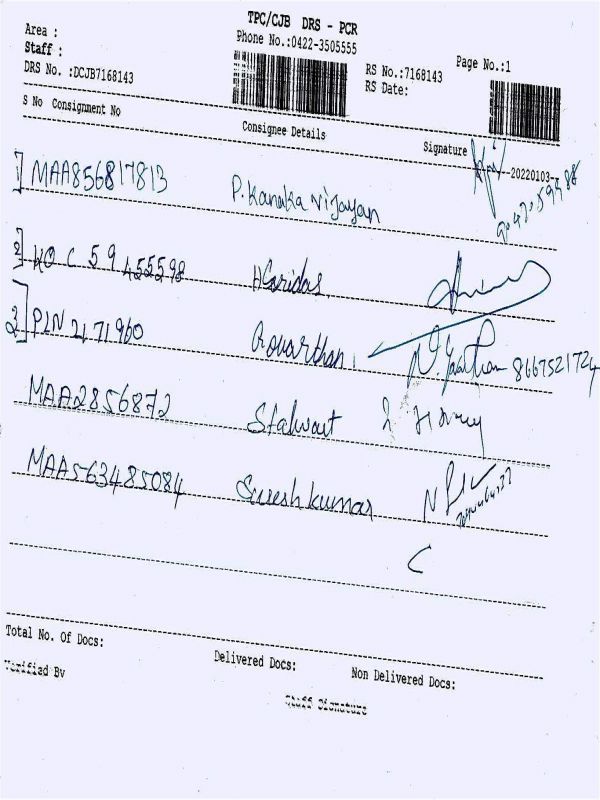 TPC/CJB DRS - PCR
Area :
Phone No.:0422-3505555
Staff :
Page No.:1
DRS No. :DCJB7168143
RS No.:7168143
RS Date:
S No Consignment No
Consignee Details
Signature
20220103
1] MAA856817813 P. Kanaka Vijayan
2] KOC 59455598 Haridas
3] PLN 2171960 Govarthan 8667521724
MAA2856872 Stalwart
MAA563485084 Suresh kumar
Total No. Of Docs:
Delivered Docs:
Non Delivered Docs:
Verified By
Staff Signature